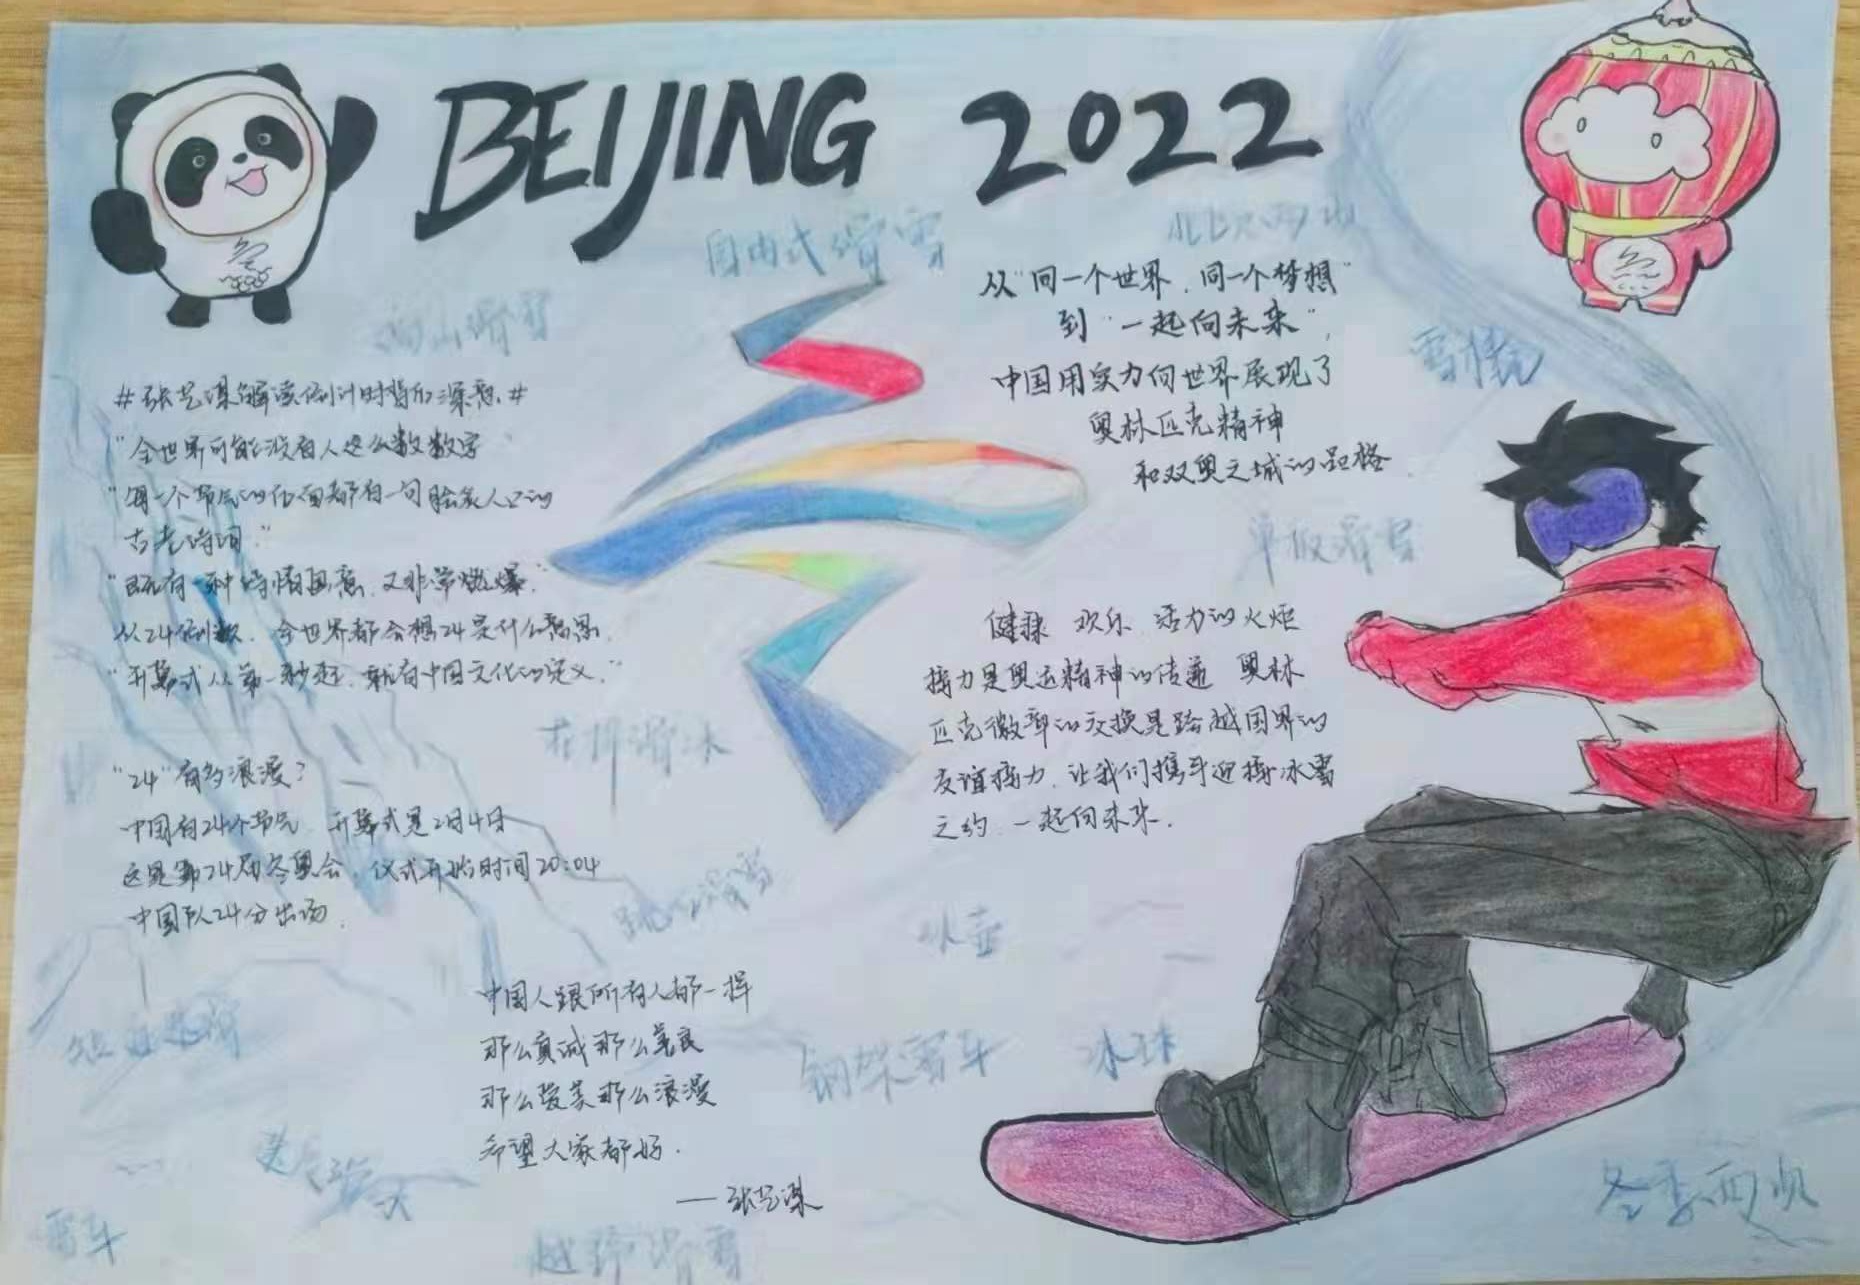 BEIJING 2022
自由式滑雪
北欧两项
高山滑雪
从“同一个世界，同一个梦想”
到“一起向未来”，
中国用实力向世界展现了
奥林匹克精神
和双奥之城的品格
雪橇
#张艺谋解读倒计时背后深意#
“全世界可能没有人这么数数字
“每一个节气的画面都有一句脍炙人口的
古老诗词.”
“既有一种诗情画意，又非常燃爆.”
从24倒数，全世界都会想24是什么意思.
“开幕式从第一秒起，就有中国文化的定义.”
单板滑雪
健康 欢乐 活力的火炬
接力是奥运精神的传递 奥林
匹克徽章的交换是跨越国界的
友谊接力，让我们携手迎接冰雪
之约 一起向未来.
花样滑冰
“24”有多浪漫？
中国有24个节气 开幕式是2月4日
这是第24届冬奥会，仪式开始时间20:04
中国队24分出场.
跳台滑雪
冰壶
中国人跟所有人都一样
那么真诚那么善良
那么爱美那么浪漫
希望大家都好.
——张艺谋
短道速滑
钢架雪车
冰球
雪车
越野滑雪
冬季两项